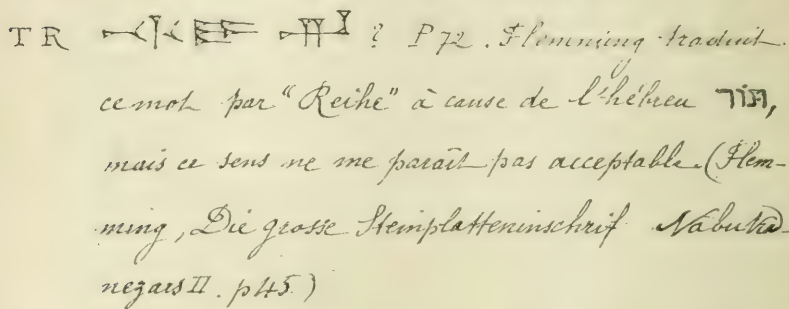 TR ? P72. Flemming traduit
ce mot par "Reihe" à cause de l'hébreu תור,
mais ce sens ne me paraît pas acceptable. (Flem-
ming, Die grosse Steinplatteninschrif Nabukad-
nezars II. p45)